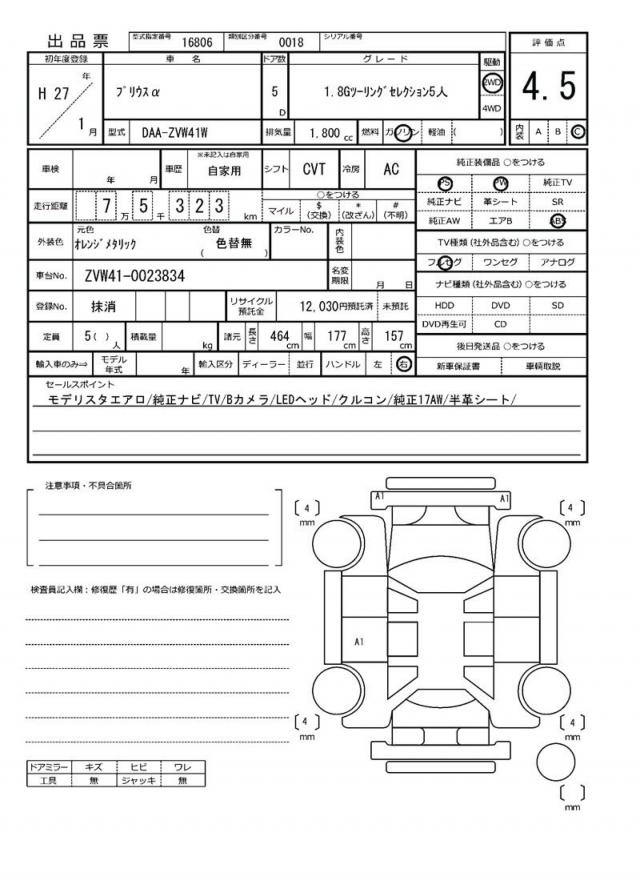 出品票 型式指定番号 16806 類別区分番号 0018 シリアル番号
初年度登録 車 名 ドア数 グレード 駆動 評価点
H 27 年 1 月 プリウスα 5 D 1.8Gツーリングセレクション5人 2WD 4WD 4.5
型式 DAA-ZVW41W 排気量 1,800 cc 燃料 ガソリン 軽油 ( ) 内装 A B C
車検 年 月 車歴 ※未記入は自家用 自家用 シフト CVT 冷房 AC 純正装備品 ○をつける
PS PW 純正TV
走行距離 7 万 5 千 3 2 3 km ○をつける
マイル $ (交換) * (改ざん) # (不明)
純正ナビ 革シート SR
純正AW エアB ABS
外装色 元色 オレンジメタリック 色替 ( 色替無 ) カラーNo. 内装色
TV種類 (社外品含む) ○をつける
フルセグ ワンセグ アナログ
車台No. ZVW41-0023834 名変期限 月 日
ナビ種類 (社外品含む) ○をつける
登録No. 抹消 リサイクル預託金 12,030円預託済 未預託
HDD DVD SD
DVD再生可 CD
定員 5 ( ) 人 積載量 kg 諸元 長さ 464 cm 幅 177 cm 高さ 157 cm
後日発送品 ○をつける
輸入車のみ⇒ モデル年式 年 輸入区分 ディーラー 並行 ハンドル 左 右
新車保証書 車輌取説
セールスポイント
モデリスタエアロ/純正ナビ/TV/Bカメラ/LEDヘッド/クルコン/純正17AW/半革シート/
注意事項・不具合箇所
検査員記入欄：修復歴「有」の場合は修復箇所・交換箇所を記入
A1 A1
4 mm
4 mm
A1
4 mm
4 mm
mm
ドアミラー キズ ヒビ ワレ
工具 無 ジャッキ 無